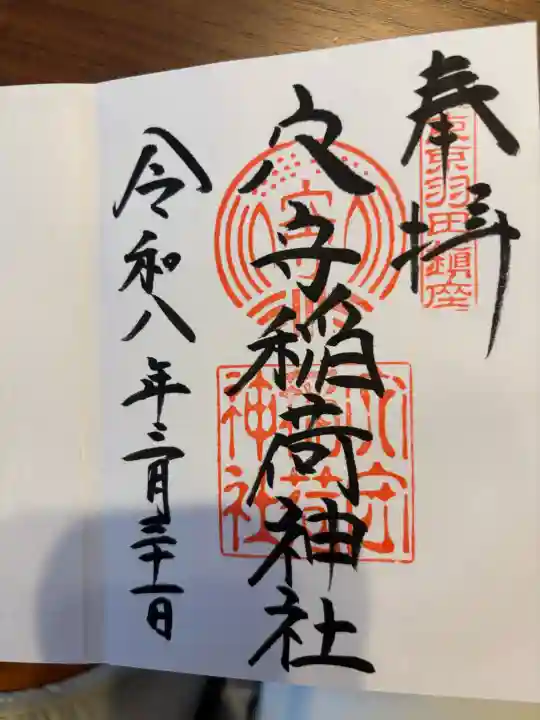 奉拝
東京羽田鎮座
穴守稲荷神社
穴守稲荷神社
令和八年三月三十一日